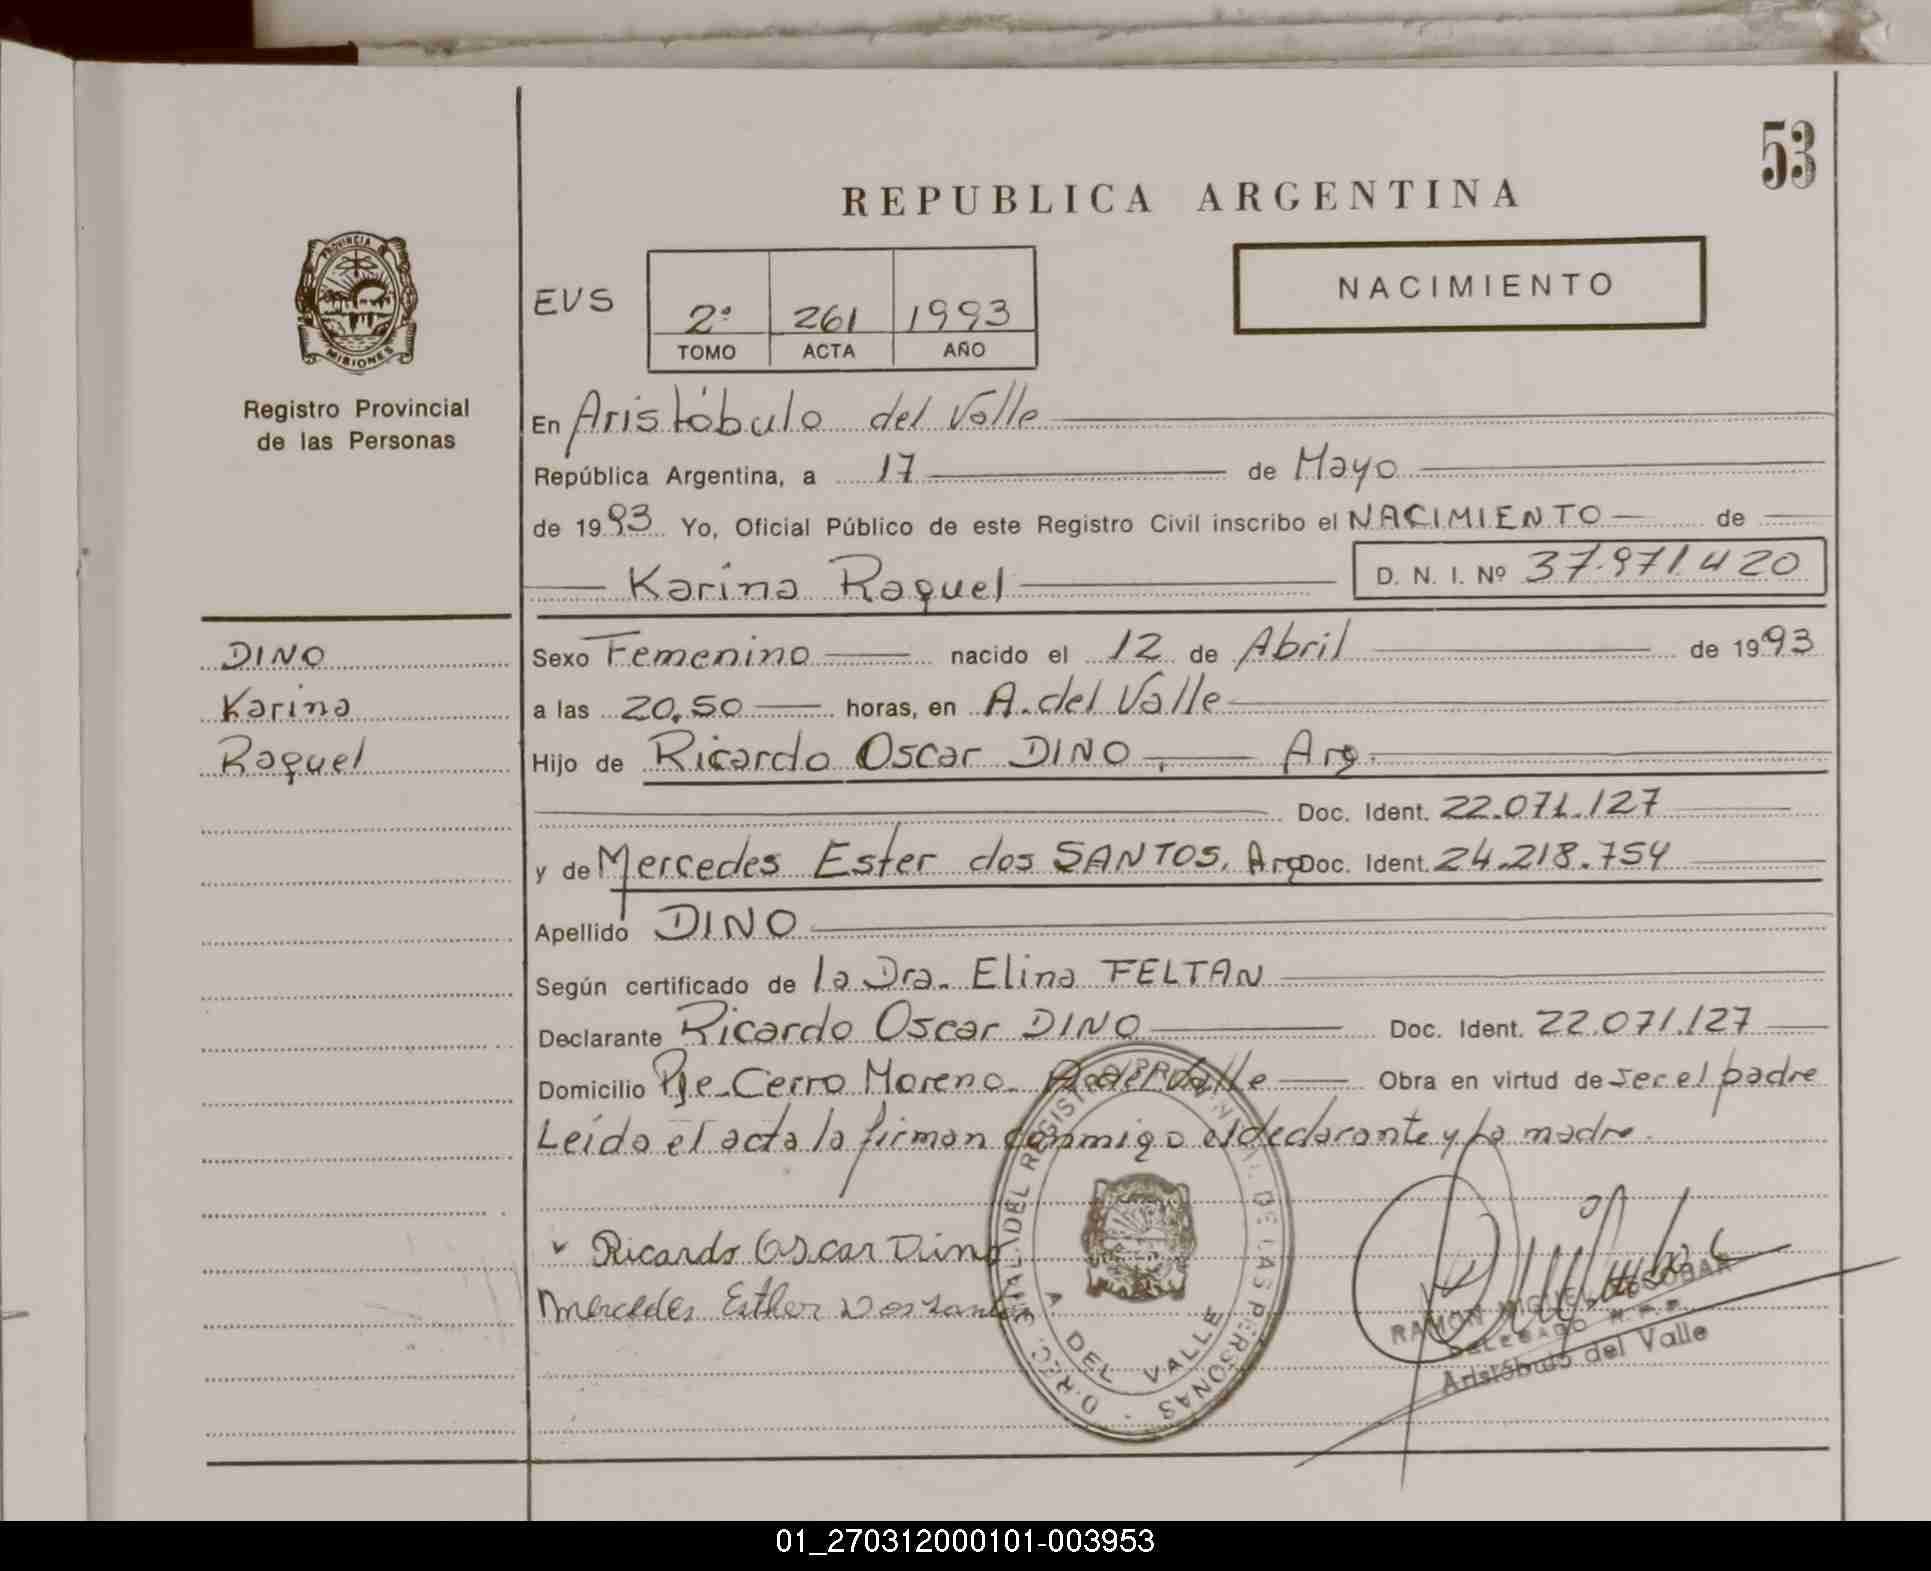 53
REPUBLICA ARGENTINA
PROVINCIA DE
MISIONES
Registro Provincial
de las Personas
EVS
2º 261 1993
TOMO ACTA AÑO
NACIMIENTO
En Aristóbulo del Valle
República Argentina, a 17 de Mayo
de 1993 Yo, Oficial Público de este Registro Civil inscribo el NACIMIENTO de
Karina Raquel D. N. I. Nº 37.971.420
DINO
Karina
Raquel
Sexo Femenino nacido el 12 de Abril de 1993
a las 20.50 horas, en A. del Valle
Hijo de Ricardo Oscar DINO, Arg.
Doc. Ident. 22.071.127
y de Mercedes Ester dos SANTOS. Arg Doc. Ident. 24.218.754
Apellido DINO
Según certificado de la Dra. Elina FELTAN
Declarante Ricardo Oscar DINO Doc. Ident. 22.071.127
Domicilio Pje. Cerro Moreno. A. del Valle Obra en virtud de ser el padre
Leída el acta la firman conmigo el declarante y la madre.
Ricardo Oscar Dino
Mercedes Esther Dos Santos
DIREC. GRAL. DEL REGISTRO PROVINCIAL DE LAS PERSONAS
A. DEL VALLE
RAMON MIGUEL ESCOBAR
DELEGADO R.P.P.
Aristóbulo del Valle
01_270312000101-003953